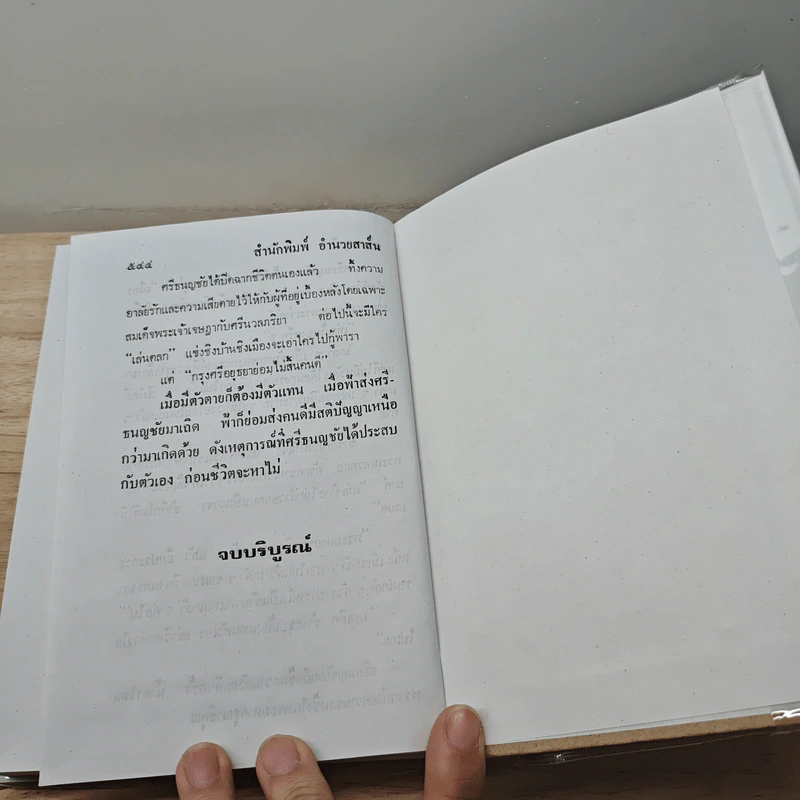 สำนักพิมพ์ อำนวยสาส์น
๕๔๔
ศรีธนญชัยได้ปิดฉากชีวิตตนเองแล้ว ทิ้งความ
อาลัยรักและความเสียดายไว้ให้กับผู้ที่อยู่เบื้องหลังโดยเฉพาะ
สมเด็จพระเจ้าเจษฎากับศรีนวลภริยา ต่อไปนี้จะมีใคร
“เล่นตลก” แข่งชิงบ้านชิงเมืองจะเอาใครไปกู้พารา
แต่ “กรุงศรีอยุธยาย่อมไม่สิ้นคนดี”
เมื่อมีตัวตายก็ต้องมีตัวแทน เมื่อฟ้าส่งศรี-
ธนญชัยมาเถิด ฟ้าก็ย่อมส่งคนดีมีสติปัญญาเหนือ
กว่ามาเกิดด้วย ดังเหตุการณ์ที่ศรีธนญชัยได้ประสบ
กับตัวเอง ก่อนชีวิตจะหาไม่
จบบริบูรณ์